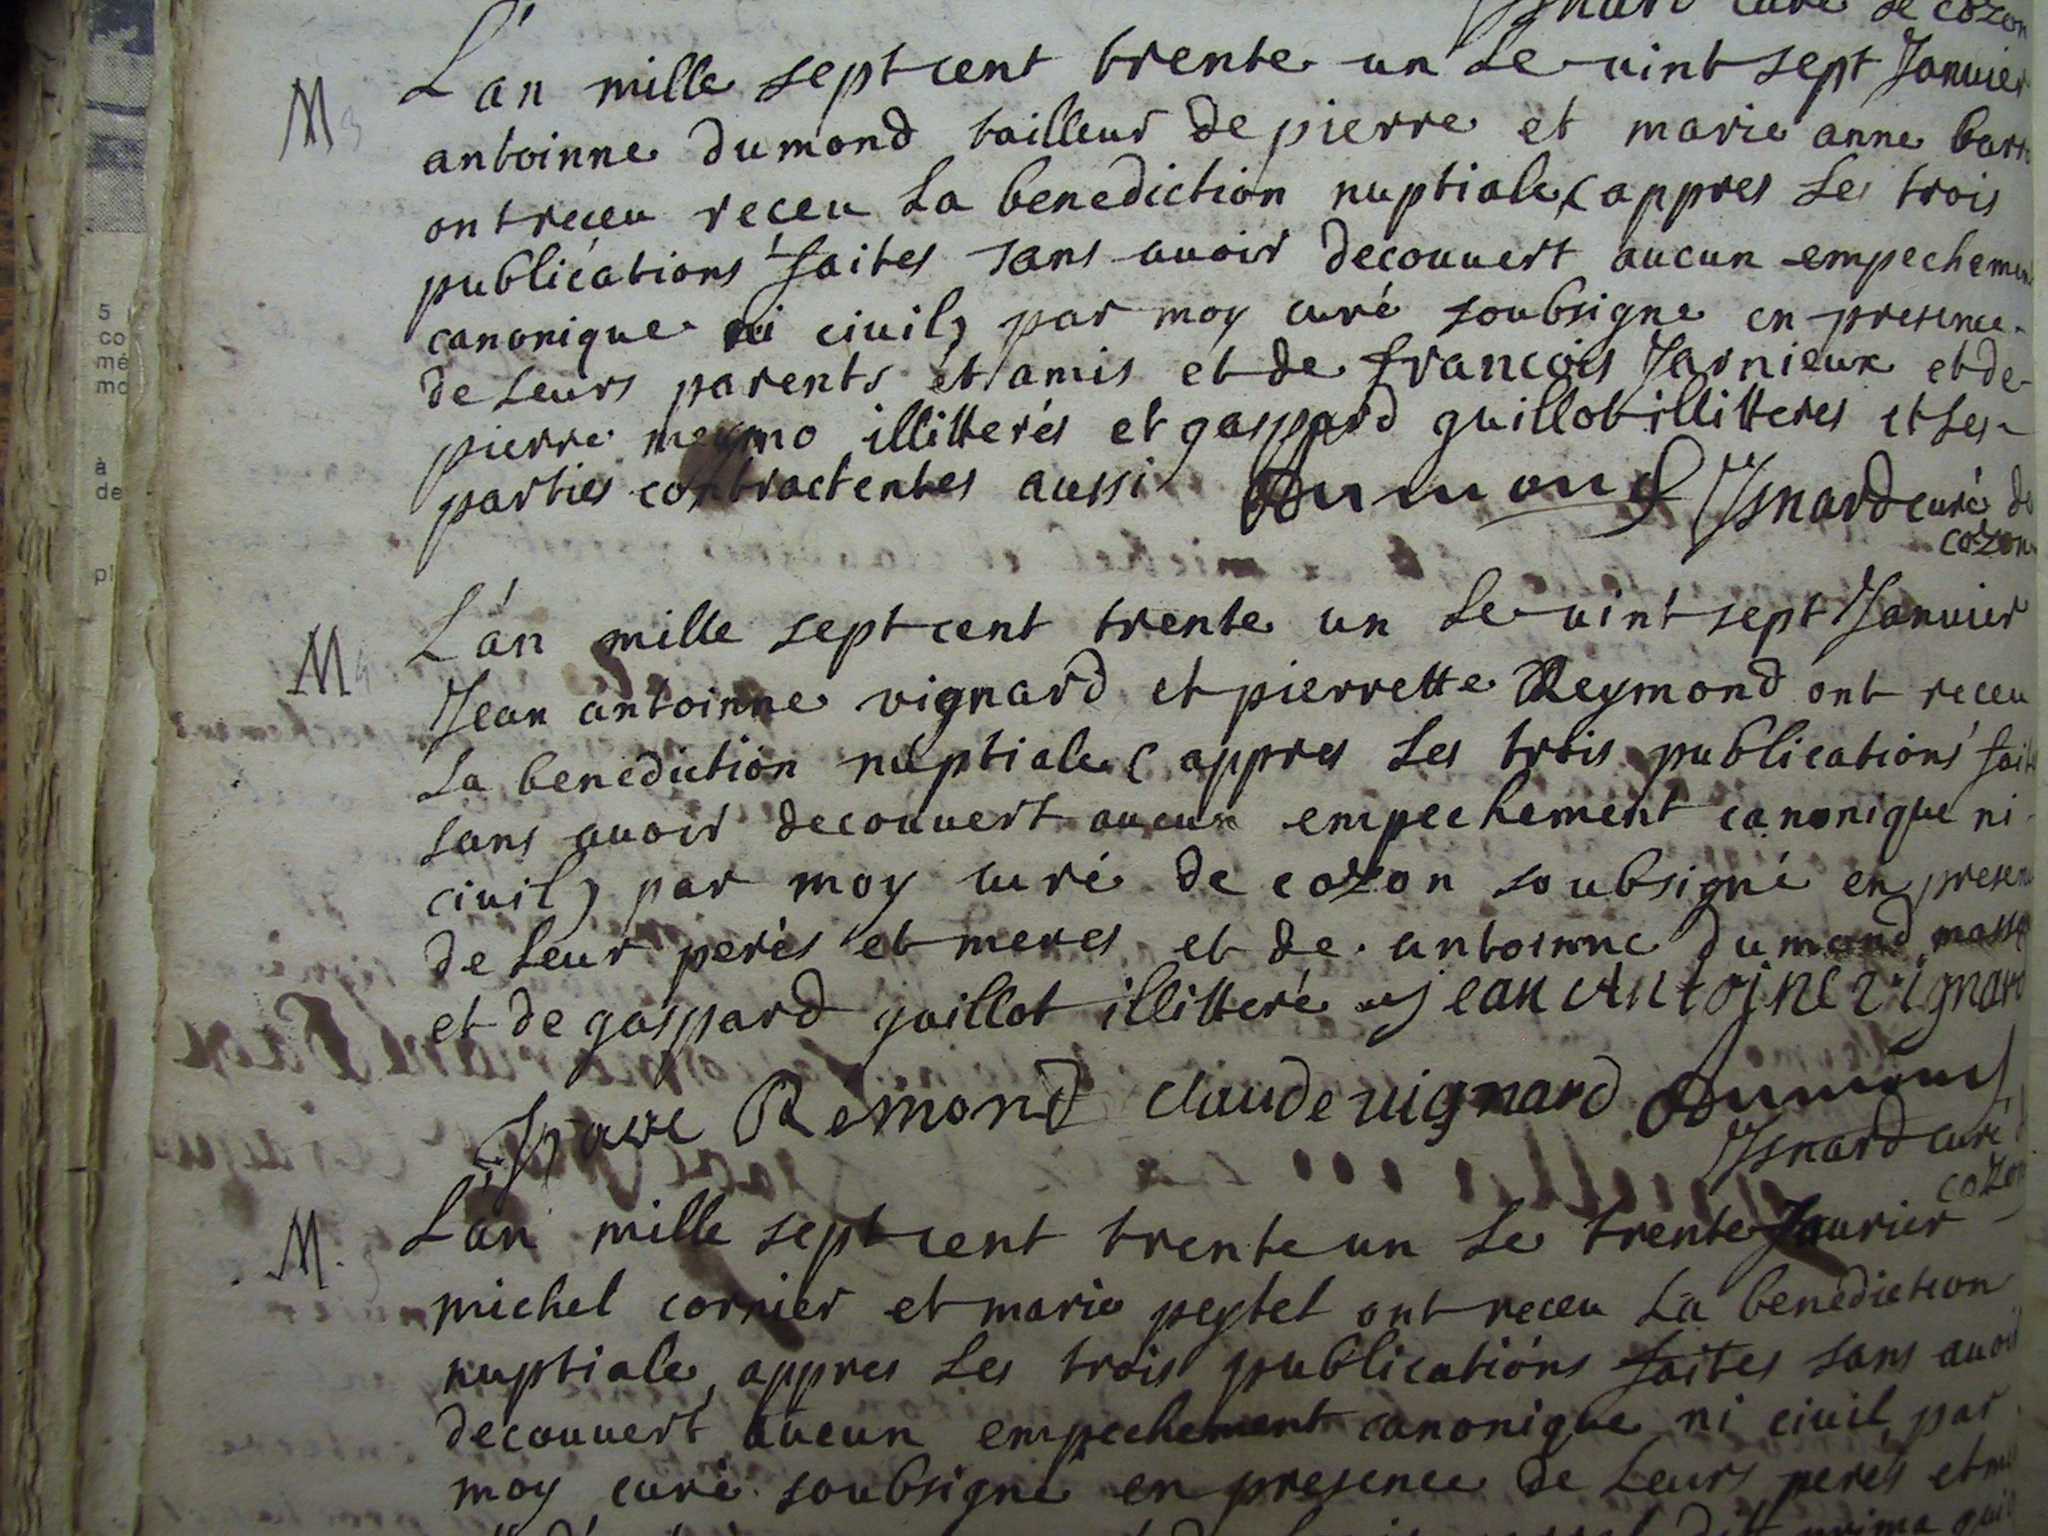 Isnard curé de cozon
M
L'an mille sept cent trente un Le vint sept Janvier
antoinne dumond tailleur de pierre et marie anne barr
ont receu receu La benediction nuptiale (appres Les trois
publications faites sans auoir decouuert aucun empechemen
canonique ni ciuil) par moy curé soubsigne en presence
de Leurs parents et amis et de francois Jarnieux et de
pierre meymo illitterés et gaspard guillot illitteres et Les
parties contractentes aussi Dumond Isnard curé de
cozon
M
L'an mille sept cent trente un Le vint sept Janvier
Jean antoinne vignard et pierrette Reymond ont receu
La benediction nuptiale (appres Les trois publications fait
sans auoir decouuert aucun empechement canonique ni
ciuil) par moy curé de cozon soubsigné en presen
de Leur perés et meres et de antoinne dumond masso
et de gaspard guillot illitteré jean Antojne vignard
Remond claude uignard Dumond
Isnard curé d
cozon
M.
L'an mille sept cent trente un Le trente Janvier
michel cornier et marie peytel ont receu La benediction
nuptiale, appres Les trois publications faites sans auoir
decouuert aucun empechement canonique ni ciuil, par
moy curé soubsigné en presence de Leurs perés et me
5
co
mé
mo
à
de
pl